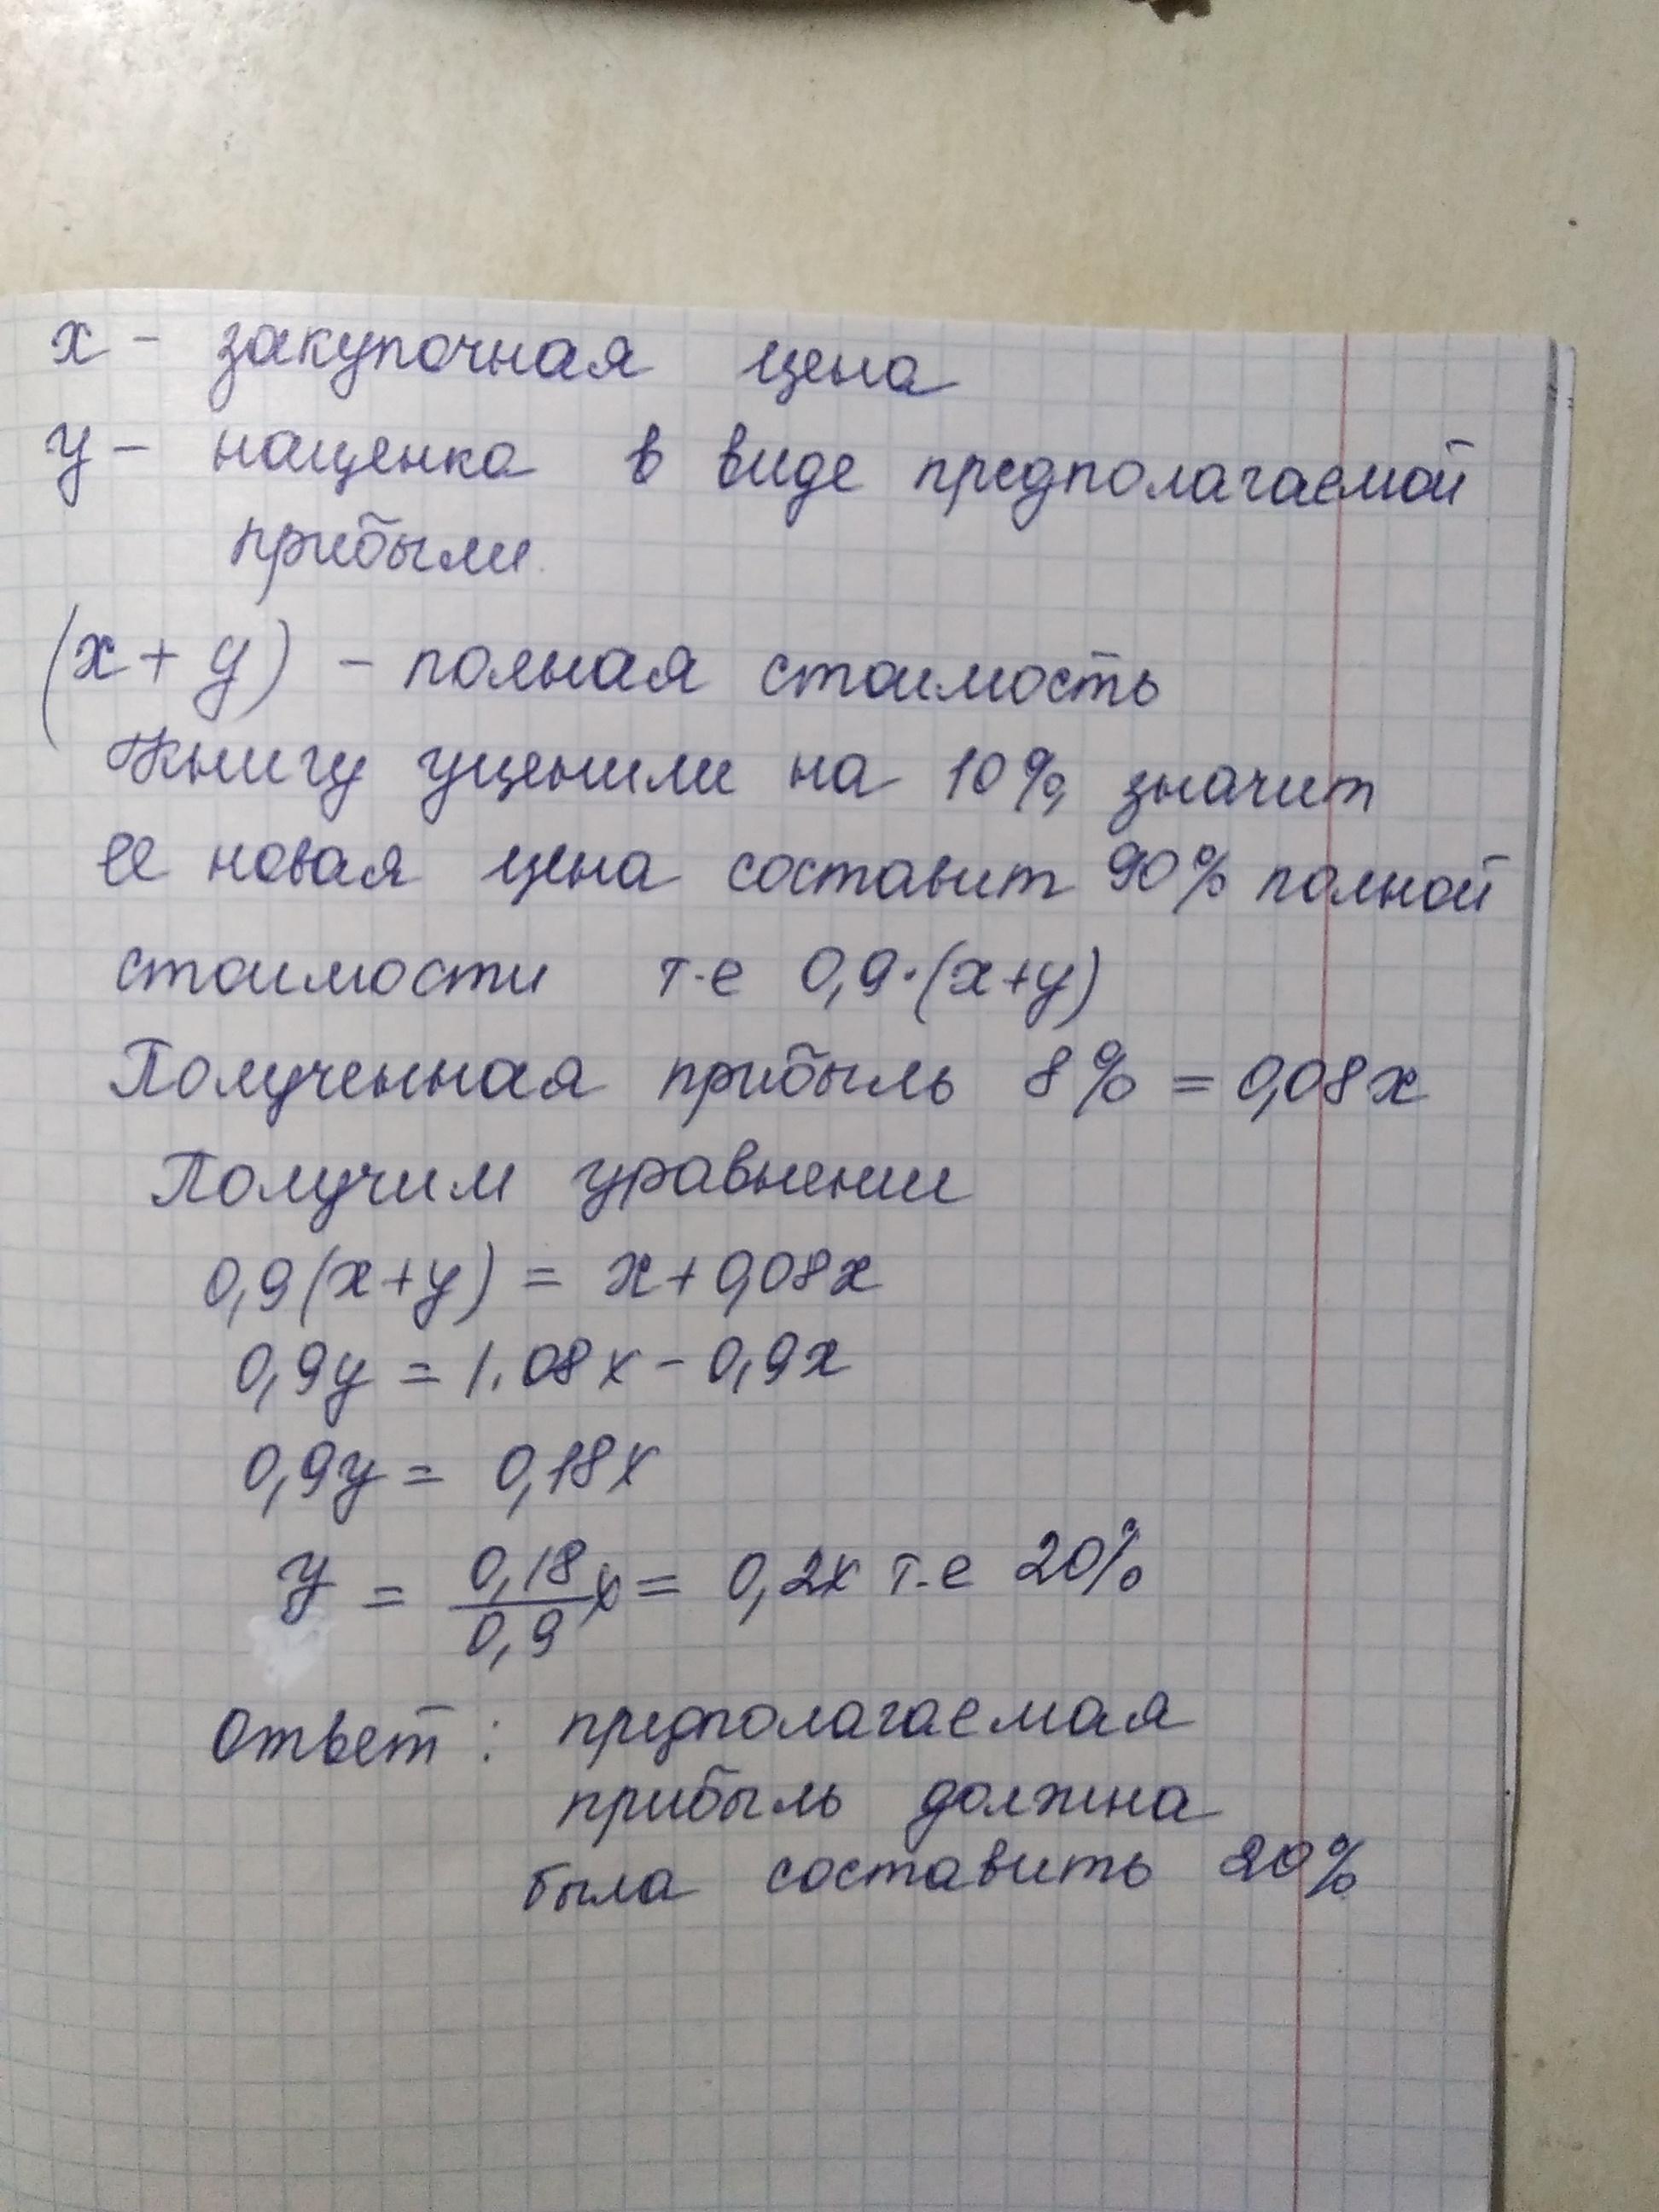 х - закупочная цена
у - наценка в виде предполагаемой
прибыли.
(х + у) - полная стоимость
Книгу уценили на 10%, значит
ее новая цена составит 90% полной
стоимости т-е 0,9·(х+у)
Полученная прибыль 8% = 0,08х
Получим уравнении
0,9(х+у) = х+0,08х
0,9у = 1.08х - 0,9х
0,9у = 0,18х
у = 0,18/0,9 х = 0,2х т-е 20%
Ответ : предполагаемая
прибыль должна
была составить 20%